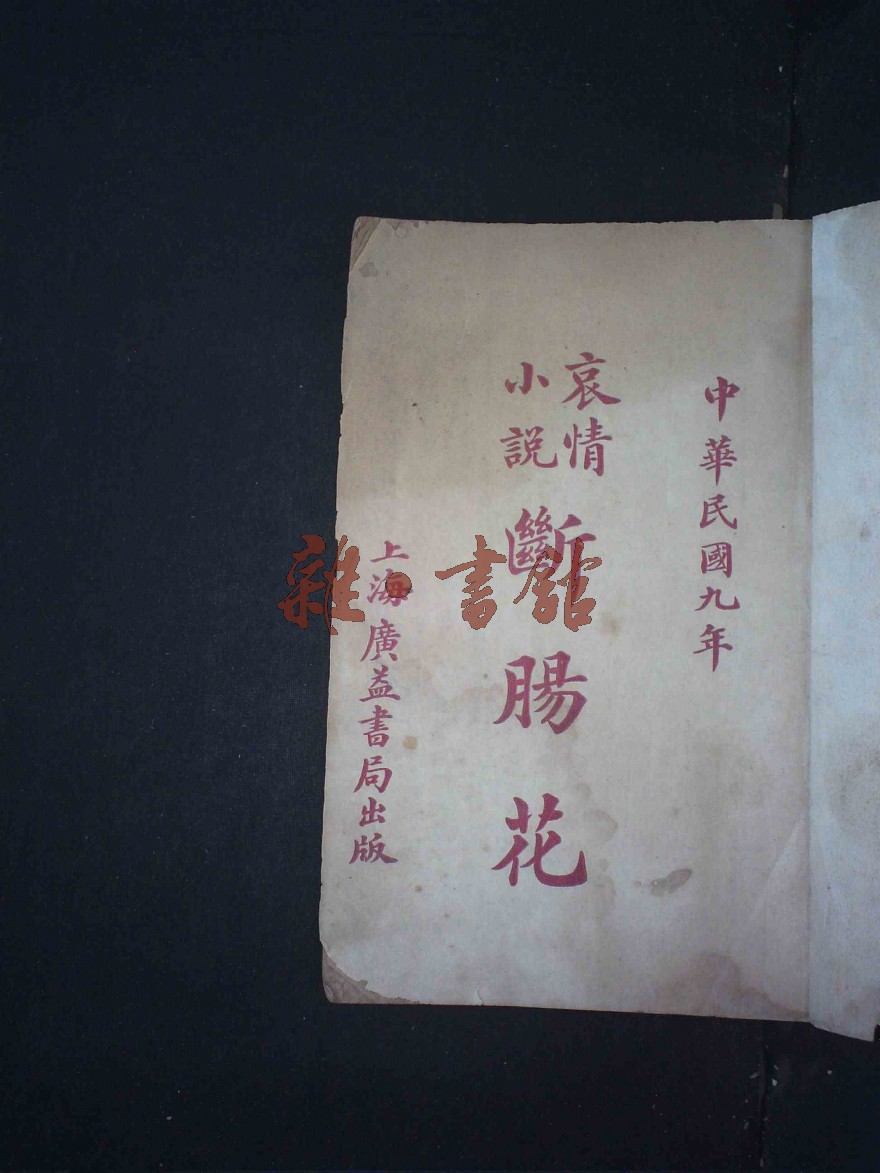 中華民國九年
哀情
小説
斷腸花
上海廣益書局出版
雜·書館